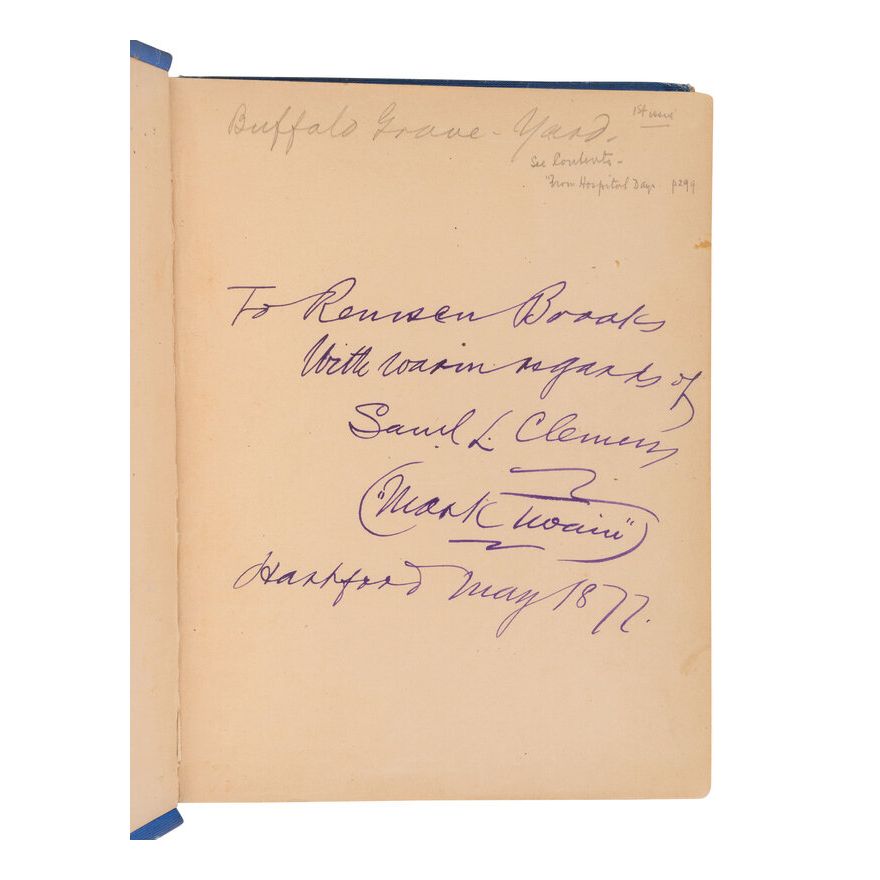 Buffalo Grave-Yard.
1st issue
See Contents-
"From Hospital Days p299
To Remsen Brooks
With warm regards of
Saml L. Clemens
("Mark Twain")
Hartford May 1877.